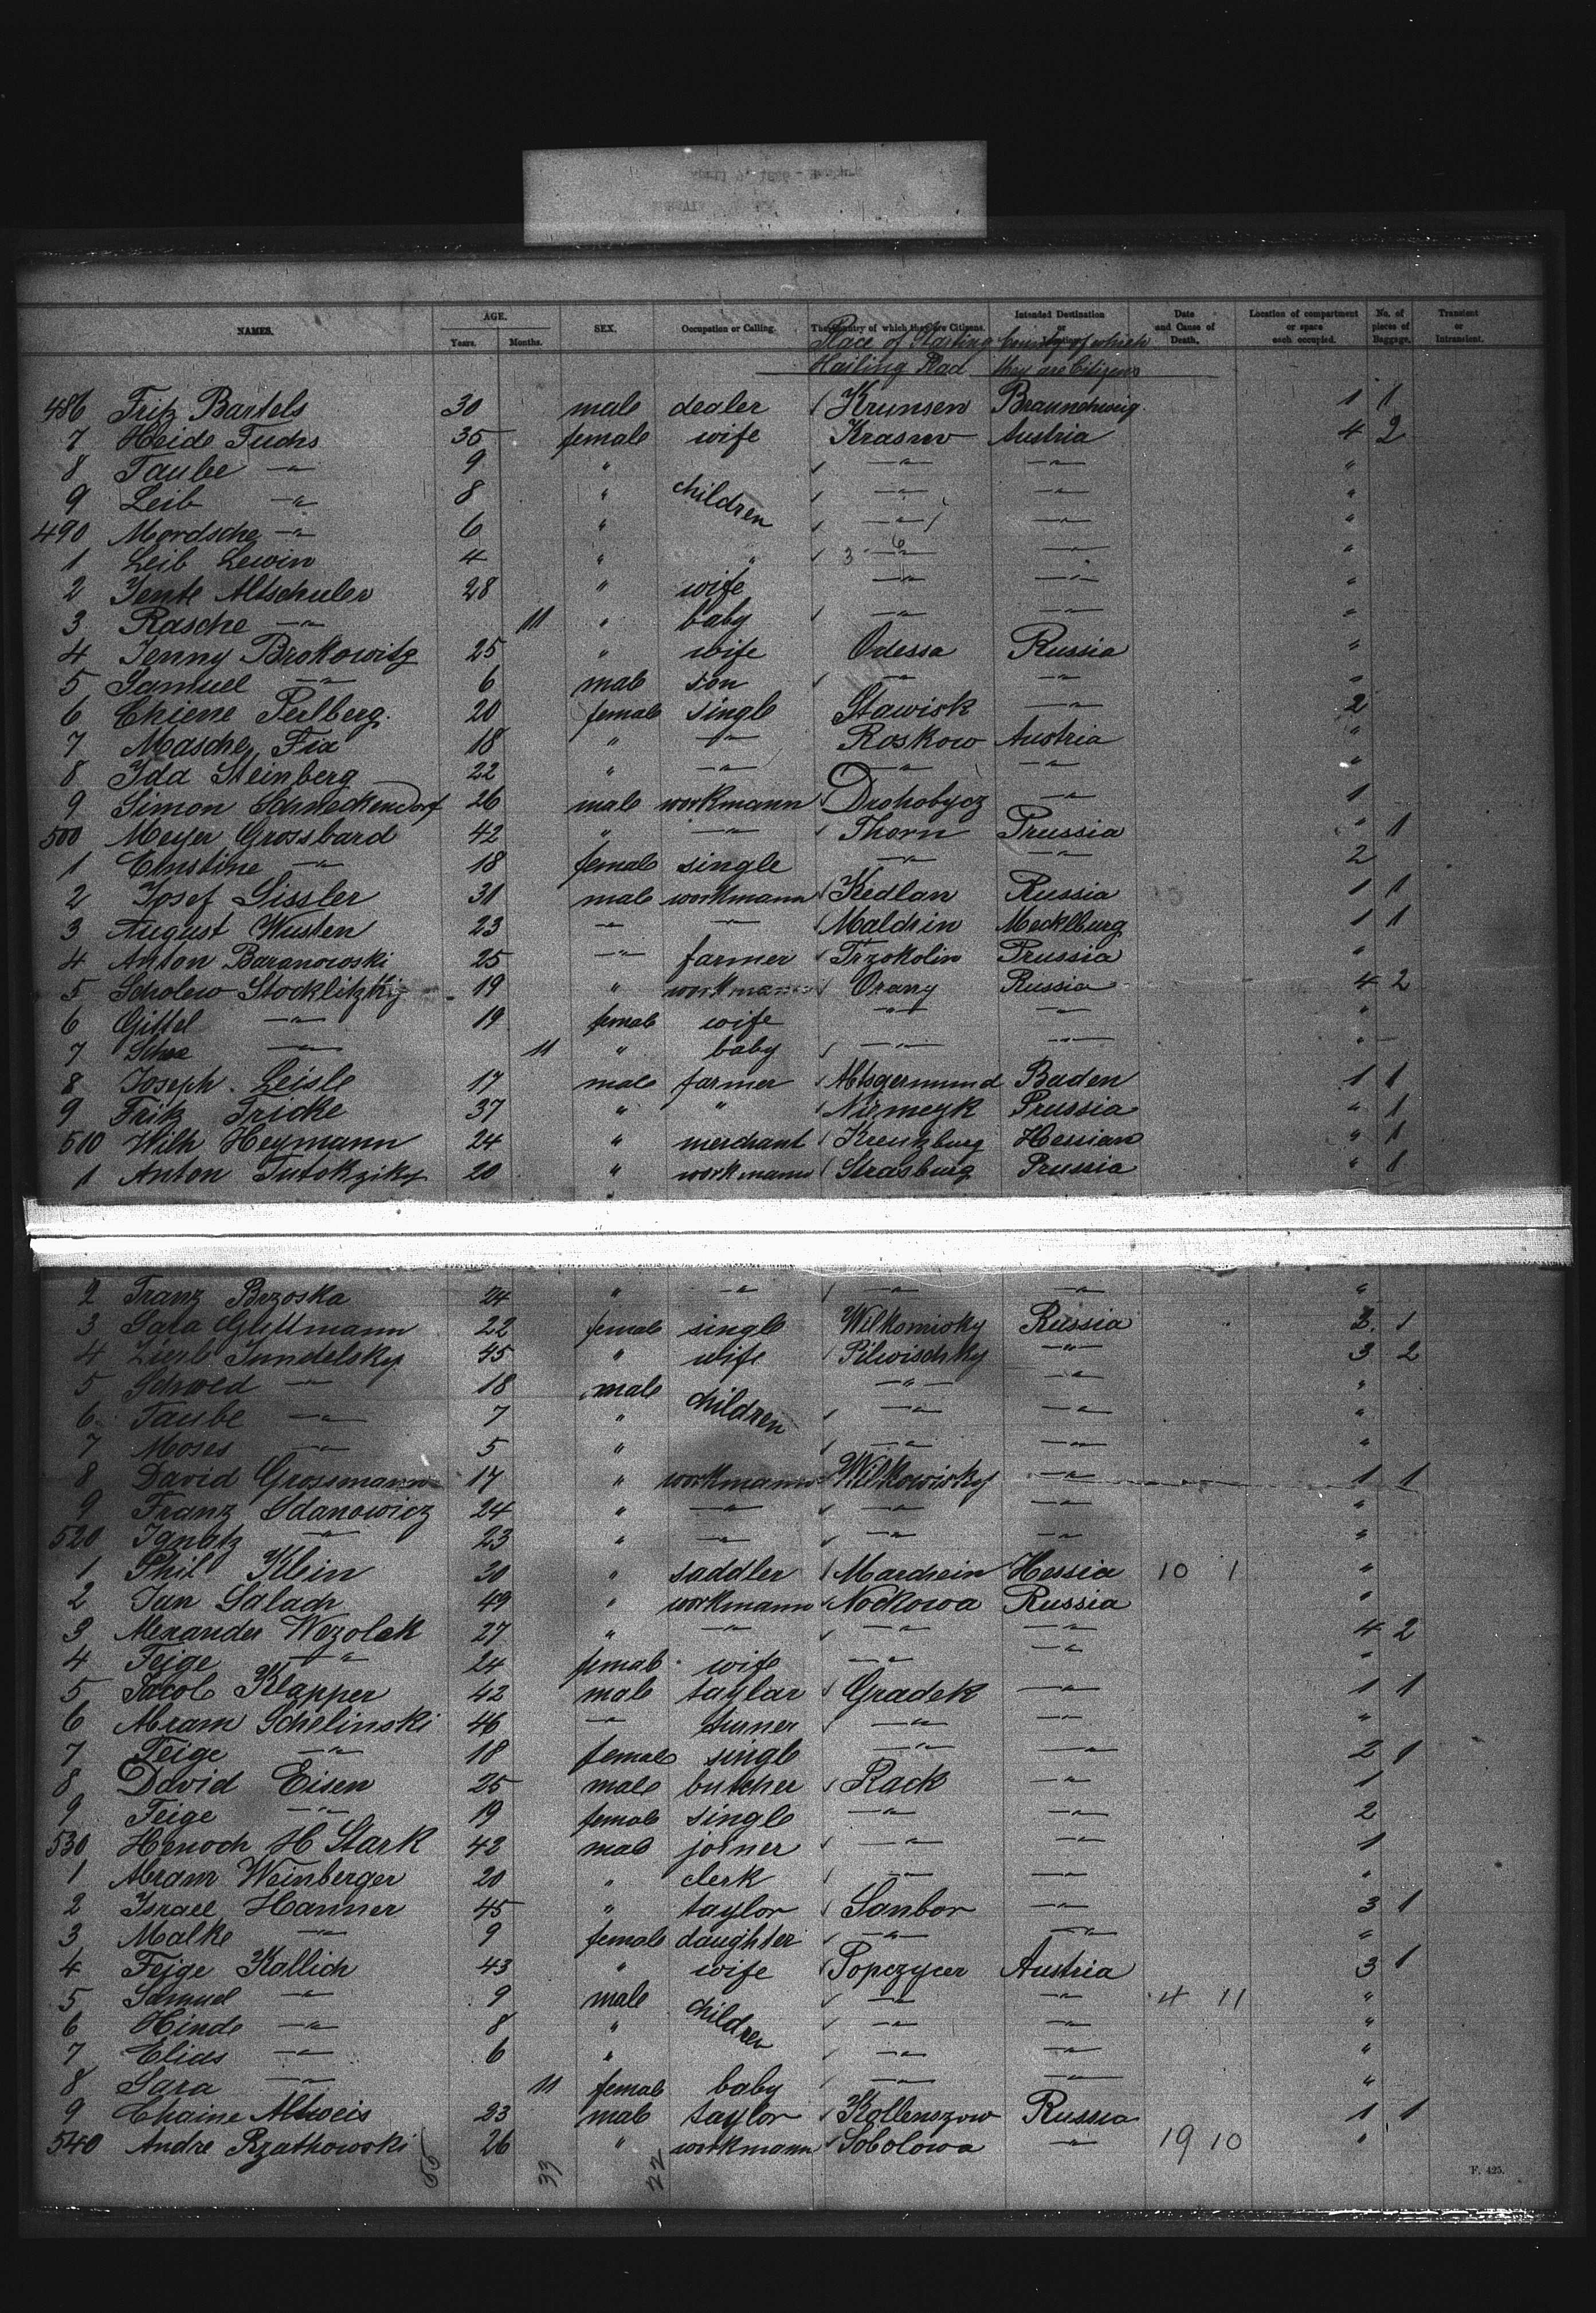 NAMES. AGE. Years. Months. SEX. Occupation or Calling. The Country of which they are Citizens. Intended Destination or Date and Cause of Death. Location of compartment or space each occupied. No. of pieces of Baggage. Transient or Intransient.
Place of Starting Country of which
Hailing they are Citizens
486 Fritz Bartels 30 male dealer Krunsen Braunschweig 1 1
7 Heide Fuchs 35 female wife Austria 4 2
8 Taube —"— 9 " —"— —"— "
9 Leib —"— 8 " children —"— —"— "
490 Mordsche —"— 6 " —"— —"— "
1 Leib Lewin 4 " " —"— —"— "
2 Jente Altschuler 28 " wife —"— —"— "
3 Rasche —"— 11 " baby —"— —"— "
4 Jenny Brokowitz 25 " wife Odessa Russia "
5 Samuel —"— 6 male son —"— —"— "
6 Chiene Perlberg 20 female single Stawisk —"— 2
7 Masche Fia 18 " —"— Roskow Austria "
8 Ida Steinberg 22 " —"— —"— —"— "
9 Simon Schneckendorf 26 male workmann Drohobycz —"— 1
500 Meyer Grossbard 42 " —"— Thorn Prussia " 1
1 Ernstine —"— 18 female single —"— —"— 2
2 Josef Sissler 31 male workmann Kedlan Russia 1 1
3 August Wusten 23 —"— —"— Maldrin Mecklburg 1 1
4 Anton Baranowski 25 —"— farmer Trzokolin Prussia "
5 Scholew Stocklitzky 19 " workmann Orany Russia 4 2
6 Gittel —"— 19 female wife —"— —"— "
7 —"— 11 " baby —"— —"— "
8 Joseph Leisle 17 male farmer Abtsgermund Baden 1 1
9 Fritz Fricke 37 " " Niemegk Prussia " 1
510 Wilh Heymann 24 " merchant Kreuzburg Hessian " 1
1 Anton Tutokziky 20 " workmann Strasburg Prussia " 1
2 Franz Brzoska 24 " —"— —"— —"— "
3 Sara Guttmann 22 female single Wilkomisky Russia 1
4 Sundelsky 45 " wife Pilwischky —"— 3 2
5 Schwed —"— 18 male —"— —"— "
6 Taube —"— 7 " children —"— —"— "
7 Moses —"— 5 " —"— —"— "
8 David Grossmann 17 " workmann Wilkowisky —"— 1 1
9 Franz Sdanowicz 24 " —"— —"— —"— "
520 Ignatz —"— 23 " —"— —"— —"— "
1 Phil Klein 30 " saddler Mardrein Hessia 10 1 "
2 Jan Salach 49 " workmann Nockowa Russia "
3 Alexander Wezolek 27 " —"— —"— —"— 4 2
4 Feige —"— 24 female wife —"— —"— "
5 Jacob Klapper 42 male taylar Gradek —"— 1 1
6 Abram Schelinski 46 —"— turner —"— —"— "
7 Feige —"— 18 female single —"— —"— 2 1
8 David Eisen 25 male butcher Rack —"— 1
9 Feige —"— 19 female single —"— —"— 2
530 Henoch H Stark 42 male joiner —"— —"— 1
1 Abram Weinberger 20 " clerk —"— —"— "
2 Israel Hanner 45 " taylor Sanbor —"— 3 1
3 Malke —"— 9 female daughter —"— —"— "
4 Feige Kallich 43 " wife Popczycer Austria 3 1
5 Samuel —"— 9 male children —"— —"— 4 11 "
6 Hinde —"— 8 " —"— —"— "
7 Elias —"— 6 " —"— —"— "
8 Sara —"— 11 female baby —"— —"— "
9 Chaine Altweis 23 male taylor Kollenszow Russia 1 1
540 Andre Rzathowski 26 " workmann Sobolowa —"— 19 10 "
55 33 22
F. 425.